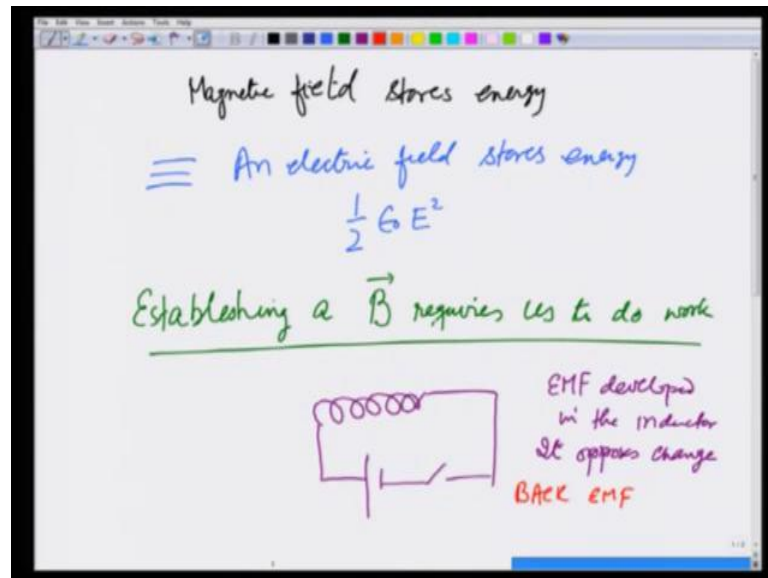 File Edit View Insert Actions Tools Help
Magnetic field stores energy
≡ An electric field stores energy
1/2 ϵ₀ E²
Establishing a B⃗ requires us to do work
EMF developed
in the inductor
It opposes change
BACK EMF